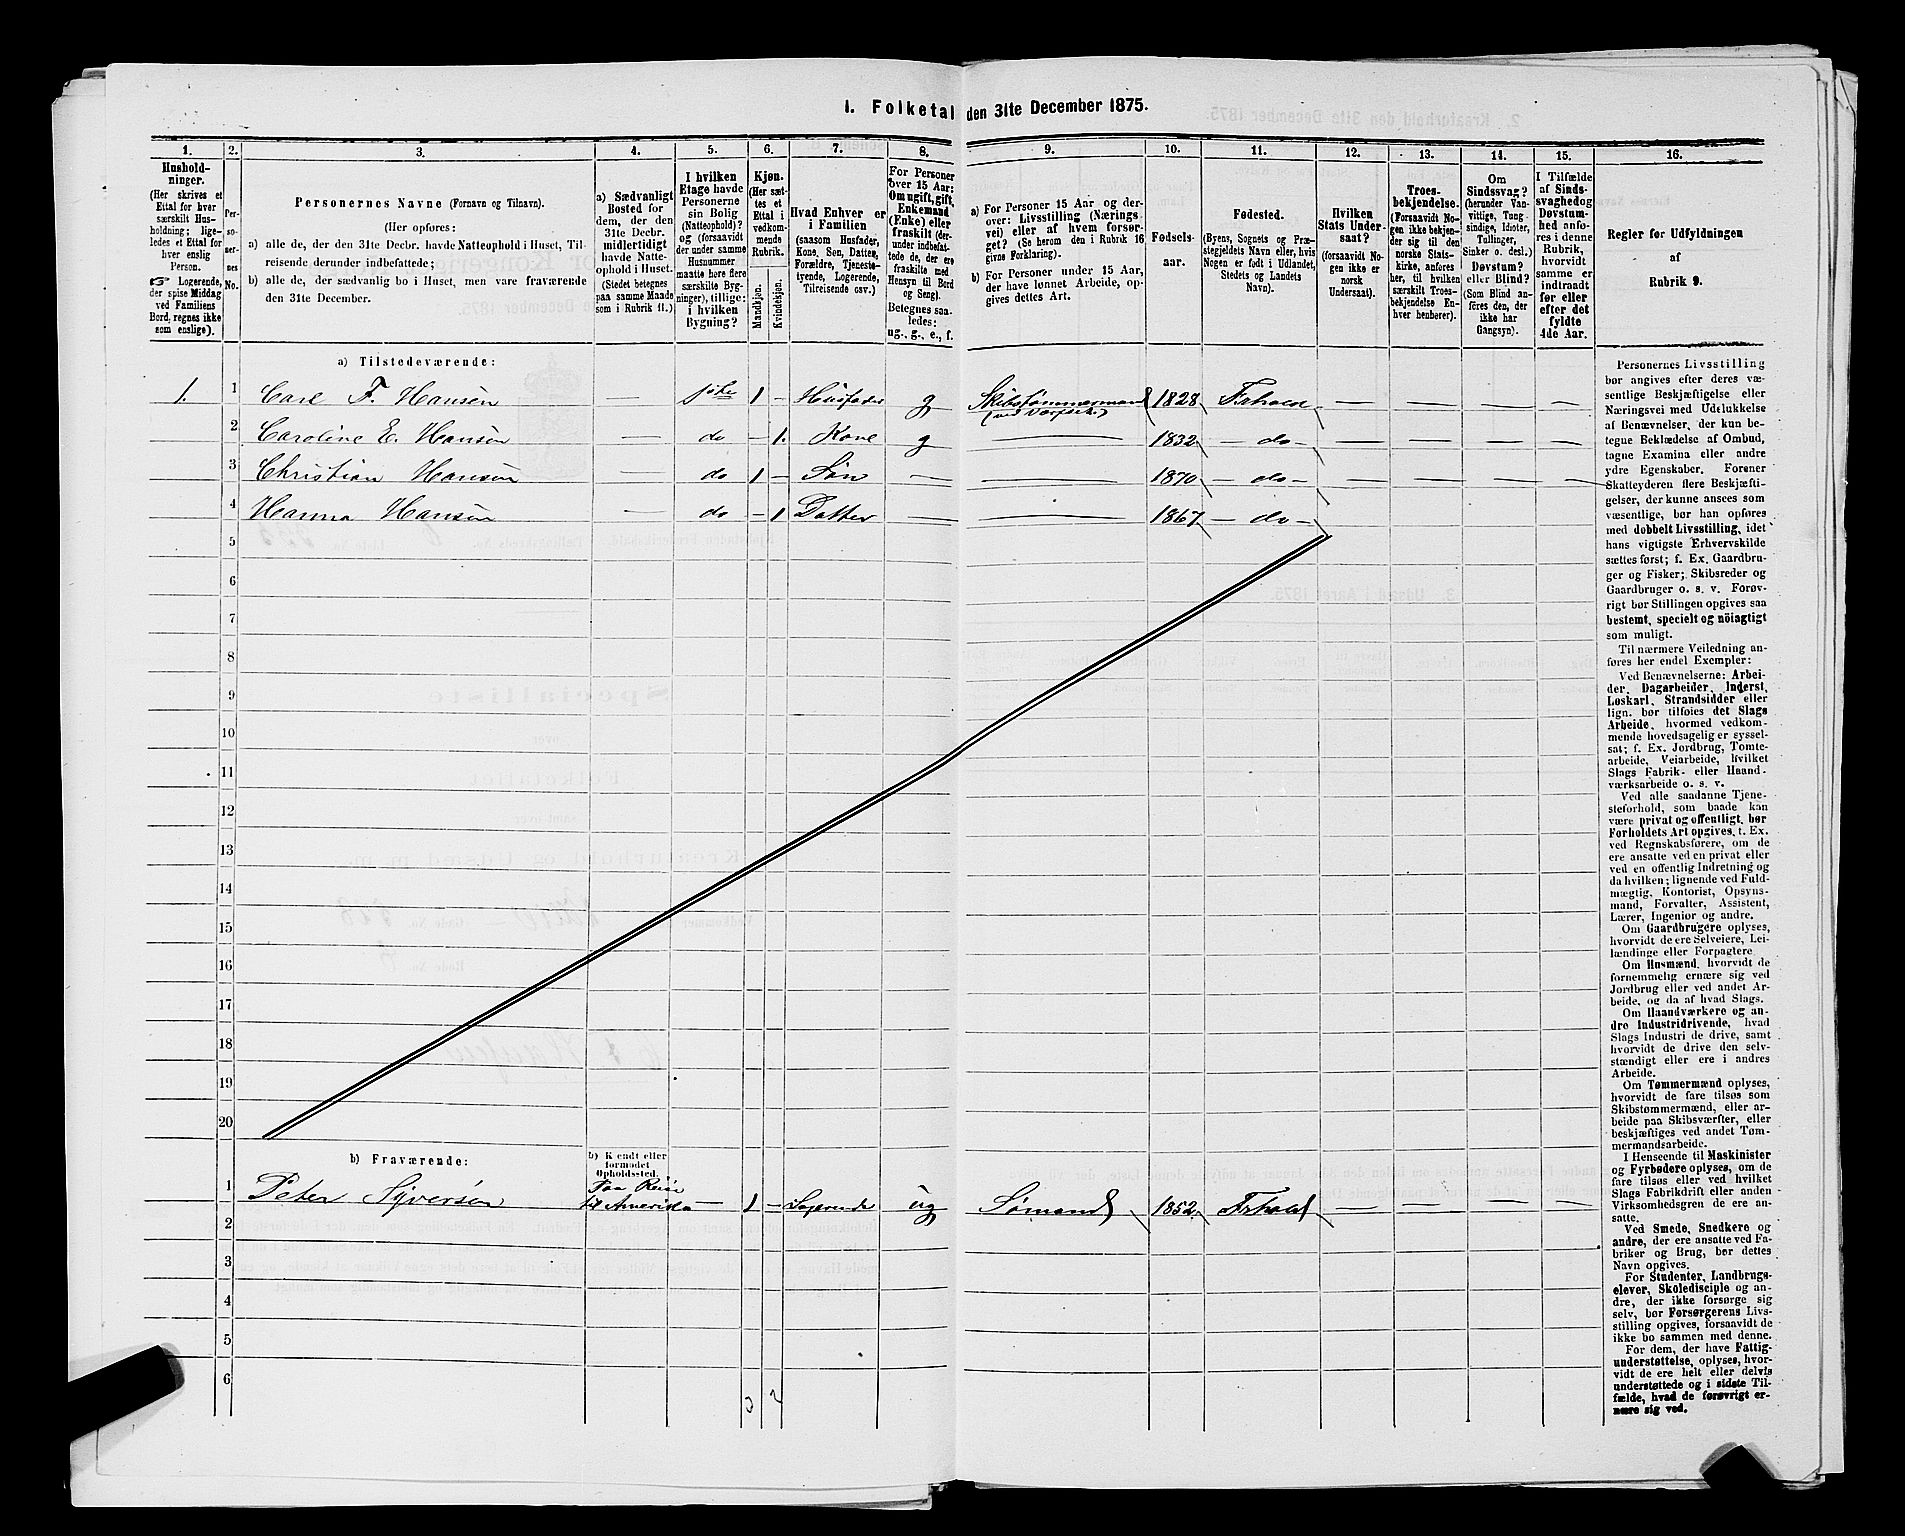 1. Folketal den 31te December 1875.
1. 2. 3. 4. 5. 6. 7. 8. 9. 10. 11. 12. 13. 14. 15. 16.
Hushold-
ninger.
(Her skrives et
Ettal for hver
særskilt Hus-
holdning; lige-
ledes et Ettal for
hver enslig
Person.
Logerende,
der spise Middag
ved Familiens
Bord, regnes ikke
som enslige).
Per-
so-
ner-
nes
No.
Personernes Navne (Fornavn og Tilnavn).
(Her opføres:
a) alle de, der den 31te Decbr. havde Natteophold i Huset, Til-
reisende derunder indbefattede;
b) alle de, der sædvanlig bo i Huset, men vare fraværende
den 31te December.
a) Sædvanligt
Bosted for
dem, der den
31te Decbr.
midlertidigt
havde Natte-
ophold i Huset.
(Stedet betegnes
paa samme Maade
som i Rubrik 11.)
I hvilken
Etage havde
Personerne
sin Bolig
(Natteophold)?
og (forsaavidt
der under samme
Husnummer
maatte høre flere
særskilte Byg-
ninger), tillige:
i hvilken
Bygning?
Kjøn.
(Her sæt-
tes et
Ettal i
vedkom-
mende
Rubrik.
Mandkjøn.
Kvindekjøn.
Hvad Enhver er
i Familien
(saasom Husfader,
Kone, Søn, Datter,
Forældre, Tjeneste-
tyende, Logerende,
Tilreisende osv.)
For Personer
over 15 Aar:
Om ugift, gift,
Enkemand
(Enke) eller
fraskilt (der-
under indbefat-
tede de, der ere
fraskilte med
Hensyn til Bord
og Seng).
Betegnes saa-
ledes:
ug., g., e., f.
a) For Personer 15 Aar og der-
over: Livsstilling (Nærings-
vei) eller af hvem forsør-
get? (Se herom den i Rubrik 16
givne Forklaring).
b) For Personer under 15 Aar,
der have lønnet Arbeide, op-
gives dettes Art.
Fødsels-
aar.
Fødested.
(Byens, Sognets og Præ-
stegjeldets Navn eller, hvis
Nogen er født i Udlandet,
Stedets og Landets
Navn).
Hvilken
Stats Under-
saat?
(forsaavidt No-
gen ikke er
norsk
Undersaat).
Troes-
bekjendelse.
(Forsaavidt No-
gen ikke bekjen-
der sig til den
norske Stats-
kirke, anføres
her, til hvilken
særskilt Troes-
bekjendelse En-
hver henhører).
Om
Sindssvag?
(herunder Van-
vittige, Tung-
sindige, Idioter,
Tullinger,
Sinker o. desl.)
Døvstum?
eller Blind?
(Som Blind an-
føres den, der
ikke har
Gangsyn).
I Tilfælde
af Sinds-
svaghed og
Døvstum-
hed anfø-
res i denne
Rubrik,
hvorvidt
samme er
indtraadt
før eller
efter det
fyldte
4de Aar.
Regler før Udfyldningen
af
Rubrik 9.
a) Tilstedeværende:
1. 1 Carl F. Hansen — 1 — Husfader g Skibstømmermand 1828 Frhald — — — —
2 Caroline E. Hansen — do — 1. Kone g — 1832 — do — — — — —
3 Christian Hansen — do 1 — Søn — — 1870 — do — — — — —
4 Hanna Hansen — do — 1 Datter — — 1867 — do — — — — —
5
6
7
8
9
10
11
12
13
14
15
16
17
18
19
20
b) Fraværende:
b) Kjendt eller
formodet
Opholdssted.
1 Peter Syversen Paa Reise til Amerika — 1 — Logerende ug Sømand 1852 Frhald — — — —
2
3
4
5
6
Personernes Livsstilling
bør angives efter deres væ-
sentlige Beskjæftigelse eller
Næringsvei med Udelukkelse
af Benævnelser, der kun be-
tegne Beklædelse af Ombud,
tagne Examina eller andre
ydre Egenskaber. Forener
Skatteyderen flere Beskjæfti-
gelser, der kunne ansees som
væsentlige, bør han opføres
med dobbelt Livsstilling, idet
hans vigtigste Erhvervskilde
sættes først; f. Ex. Gaardbru-
ger og Fisker; Skibsreder og
Gaardbruger o. s. v. Forøv-
rigt bør Stillingen opgives saa
bestemt, specielt og nöiagtigt
som muligt.
Til nærmere Veiledning an-
føres her endel Exempler:
Ved Benævnelserne: Arbei-
der, Dagarbeider, Inderst,
Løskarl, Strandsidder eller
lign. bør tilføies det Slags
Arbeide, hvormed vedkom-
mende hovedsagelig er syssel-
sat; f. Ex. Jordbrug, Tomte-
arbeide, Veiarbeide, hvilket
Slags Fabrik- eller Haand-
værksarbeide o. s. v.
Ved alle saadanne Tjene-
steforhold, som baade kan
være privat og offentligt, bør
Forholdets Art opgives, t. Ex.
ved Regnskabsførere, om de
ere ansatte ved en privat eller
ved en offentlig Indretning og
da hvilken; lignende ved Fuld-
mægtig, Kontorist, Opsyns-
mand, Forvalter, Assistent,
Lærer, Ingeniør og andre.
Om Gaardbrugere oplyses,
hvorvidt de ere Selveiere, Lei-
lændinge eller Forpagtere
Om Husmænd, hvorvidt de
fornemmelig ernære sig ved
Jordbrug eller ved andet Ar-
beide, og da af hvad Slags.
Om Haandværkere og an-
dre Industridrivende, hvad
Slags Industri de drive, samt
hvorvidt de drive den selv-
stændigt eller ere i andres
Arbeide.
Om Tømmermænd oplyses,
hvorvidt de fare tilsøs som
Skibstømmermænd, eller ar-
beide paa Skibsværfter, eller
beskjæftiges ved andet Tøm-
mermandsarbeide.
I Henseende til Maskinister
og Fyrbødere oplyses, om de
fare tilsøs eller ved hvilket
Slags Fabrikdrift eller anden
Virksomhedsgren de ere an-
satte.
Ved Smede, Snedkere og
andre, der ere ansatte ved Fa-
briker og Brug, bør dettes
Navn opgives.
For Studenter, Landbrugs-
elever, Skoledisciple og an-
dre, der ikke forsørge sig
selv, bør Forsørgerens Livs-
stilling opgives, forsaavidt de
ikke bo sammen med denne.
For dem, der have Fattig-
understøttelse, oplyses, hvor-
vidt de ere helt eller delvis
understøttede og i sidste Til-
fælde, hvad de førøvrigt er-
nære sig ved.